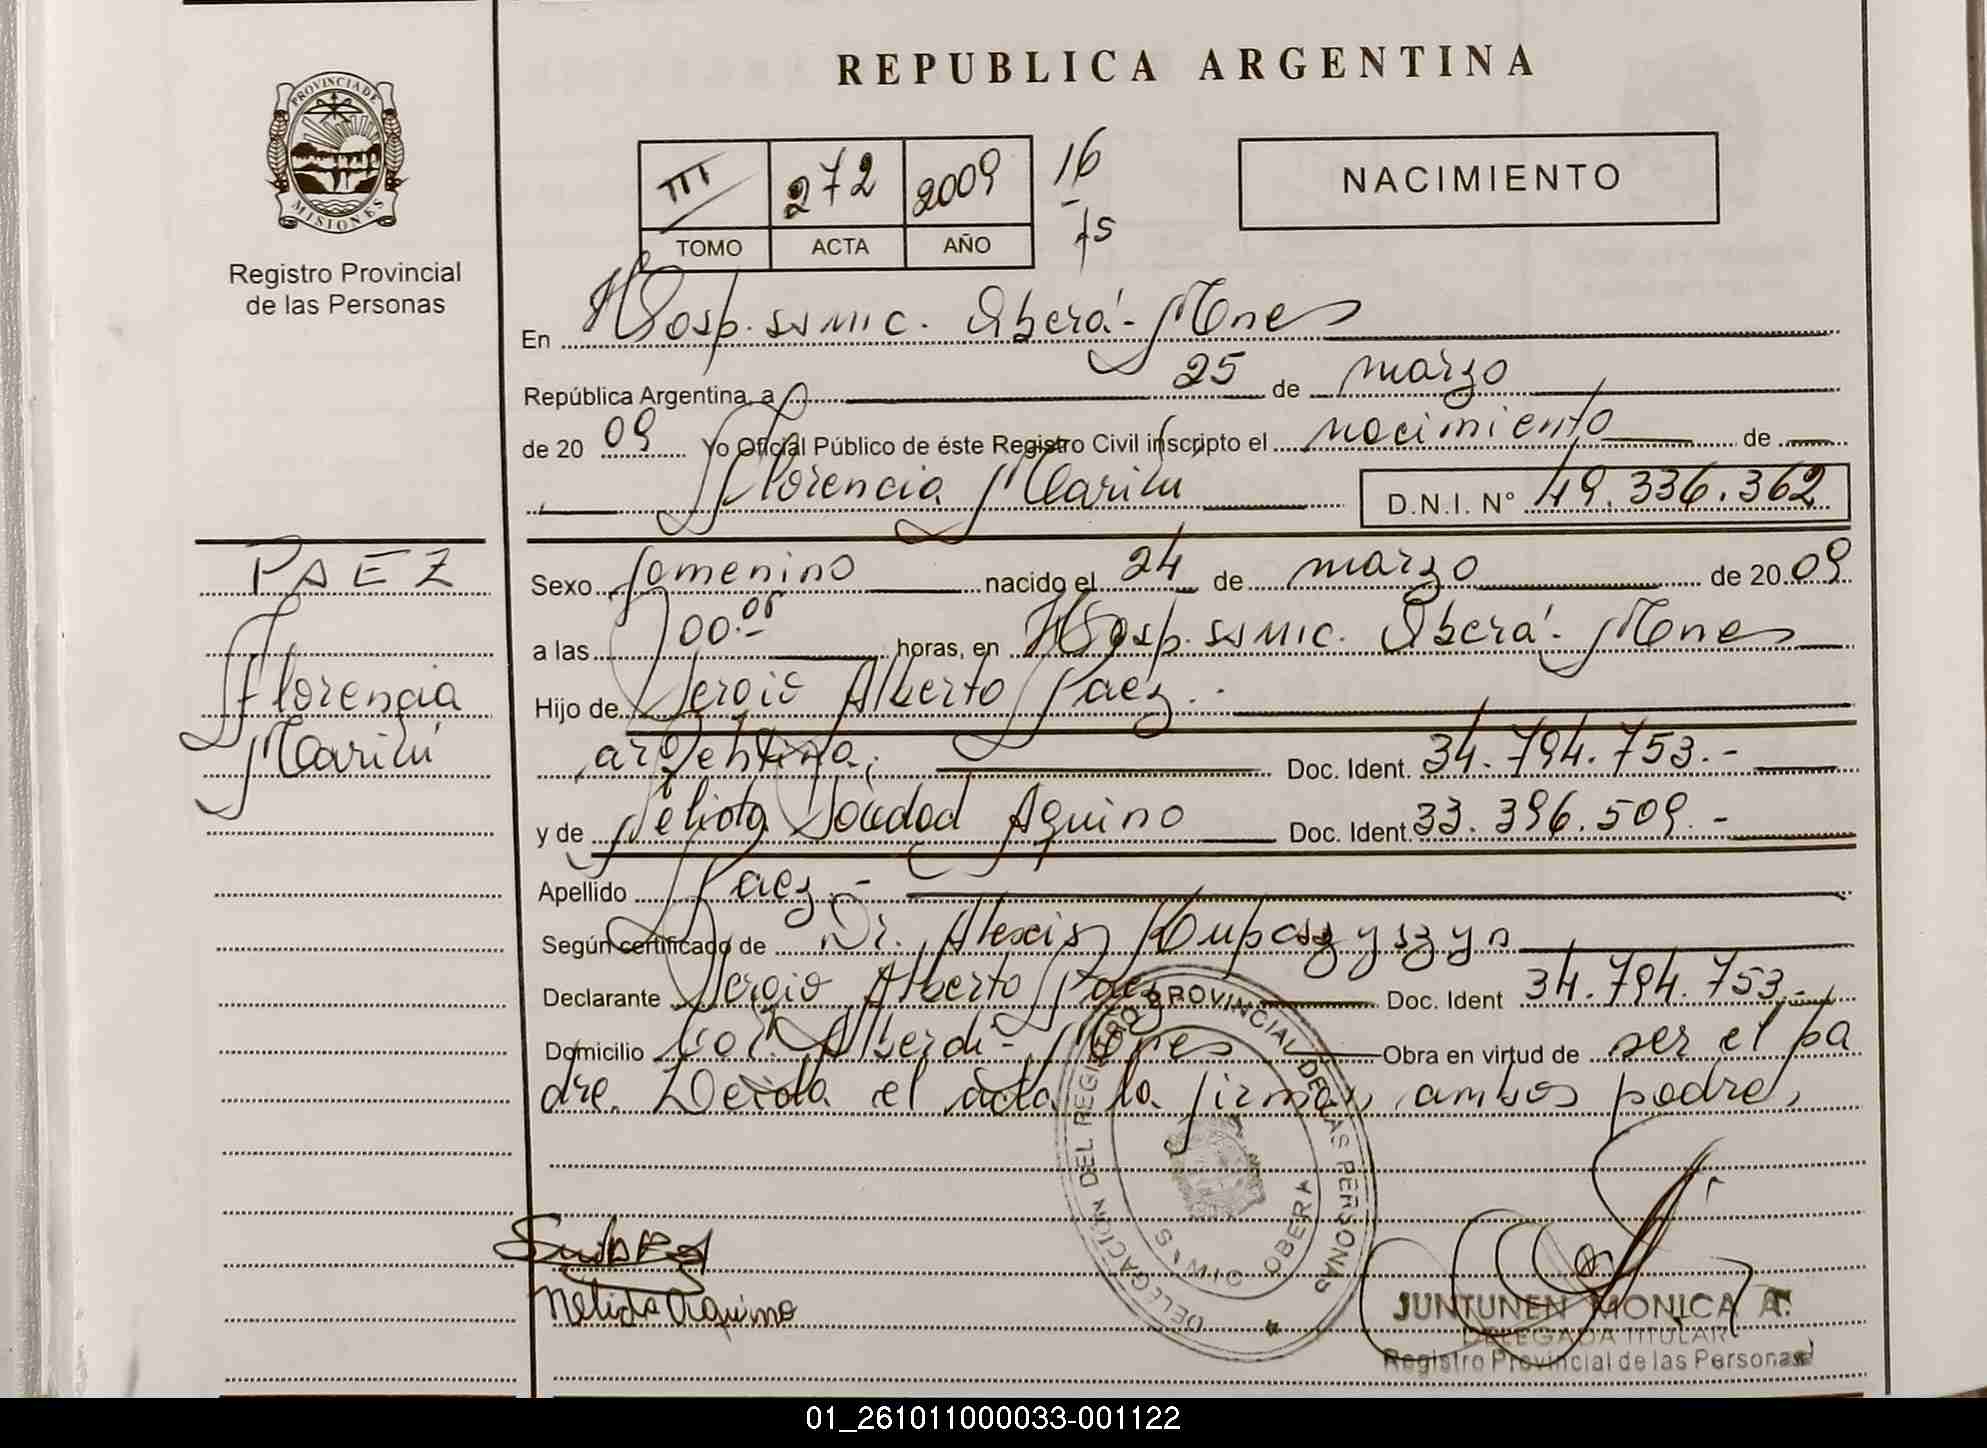 REPUBLICA ARGENTINA
PROVINCIA DE
MISIONES
Registro Provincial
de las Personas
III 272 2009 16
TOMO ACTA AÑO
NACIMIENTO
En Hosp. SS MIC. Oberá - Mnes
República Argentina, a 25 de marzo
de 20 09 Yo Oficial Público de éste Registro Civil inscripto el nacimiento de
Florencia Marilú D.N.I. N° 49.336.362
PAEZ
Florencia
Marilú
Sexo femenino nacido el 24 de marzo de 20 09
a las horas, en Hosp. SS MIC. Oberá - Mnes
Hijo de Sergio Alberto Paez.
argentina, Doc. Ident. 34.794.753.-
y de Nélida Soledad Aquino Doc. Ident. 33.396.509.-
Apellido Paez.-
Según certificado de Dr. Alexis Kupaszyszyn
Declarante Sergio Alberto Paez Doc. Ident 34.794.753.-
Domicilio Col. Alberdi - Mnes Obra en virtud de ser el pa
dre. Leída el acta la firman ambos padres
DELEGACIÓN DEL REGISTRO PROVINCIAL DE LAS PERSONAS
OBERA
Nelida Aquino
JUNTUNEN MONICA A.
DELEGADA TITULAR
Registro Provincial de las Personas
01_261011000033-001122